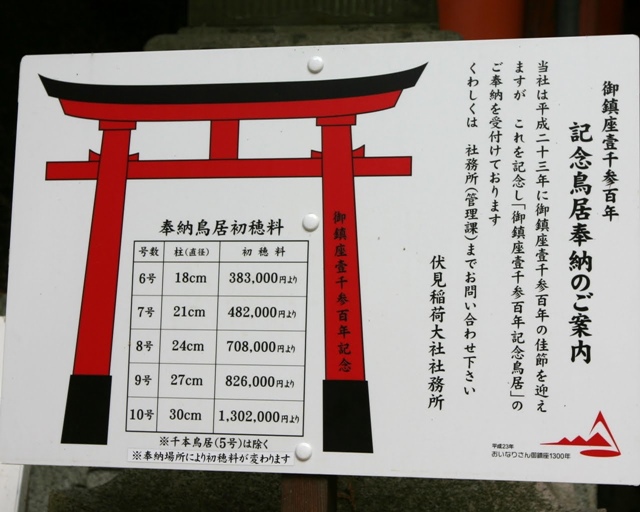 御鎮座壹千参百年
記念鳥居奉納のご案内
当社は平成二十三年に御鎮座壹千参百年の佳節を迎え
ますが これを記念し「御鎮座壹千参百年記念鳥居」の
ご奉納を受付けております
くわしくは 社務所(管理課)までお問い合わせ下さい
伏見稲荷大社社務所
御鎮座壹千参百年記念
奉納鳥居初穂料
号数 柱(直径) 初穂料
6号 18cm 383,000円より
7号 21cm 482,000円より
8号 24cm 708,000円より
9号 27cm 826,000円より
10号 30cm 1,302,000円より
※千本鳥居(5号)は除く
※奉納場所により初穂料が変わります
平成23年
おいなりさん御鎮座1300年